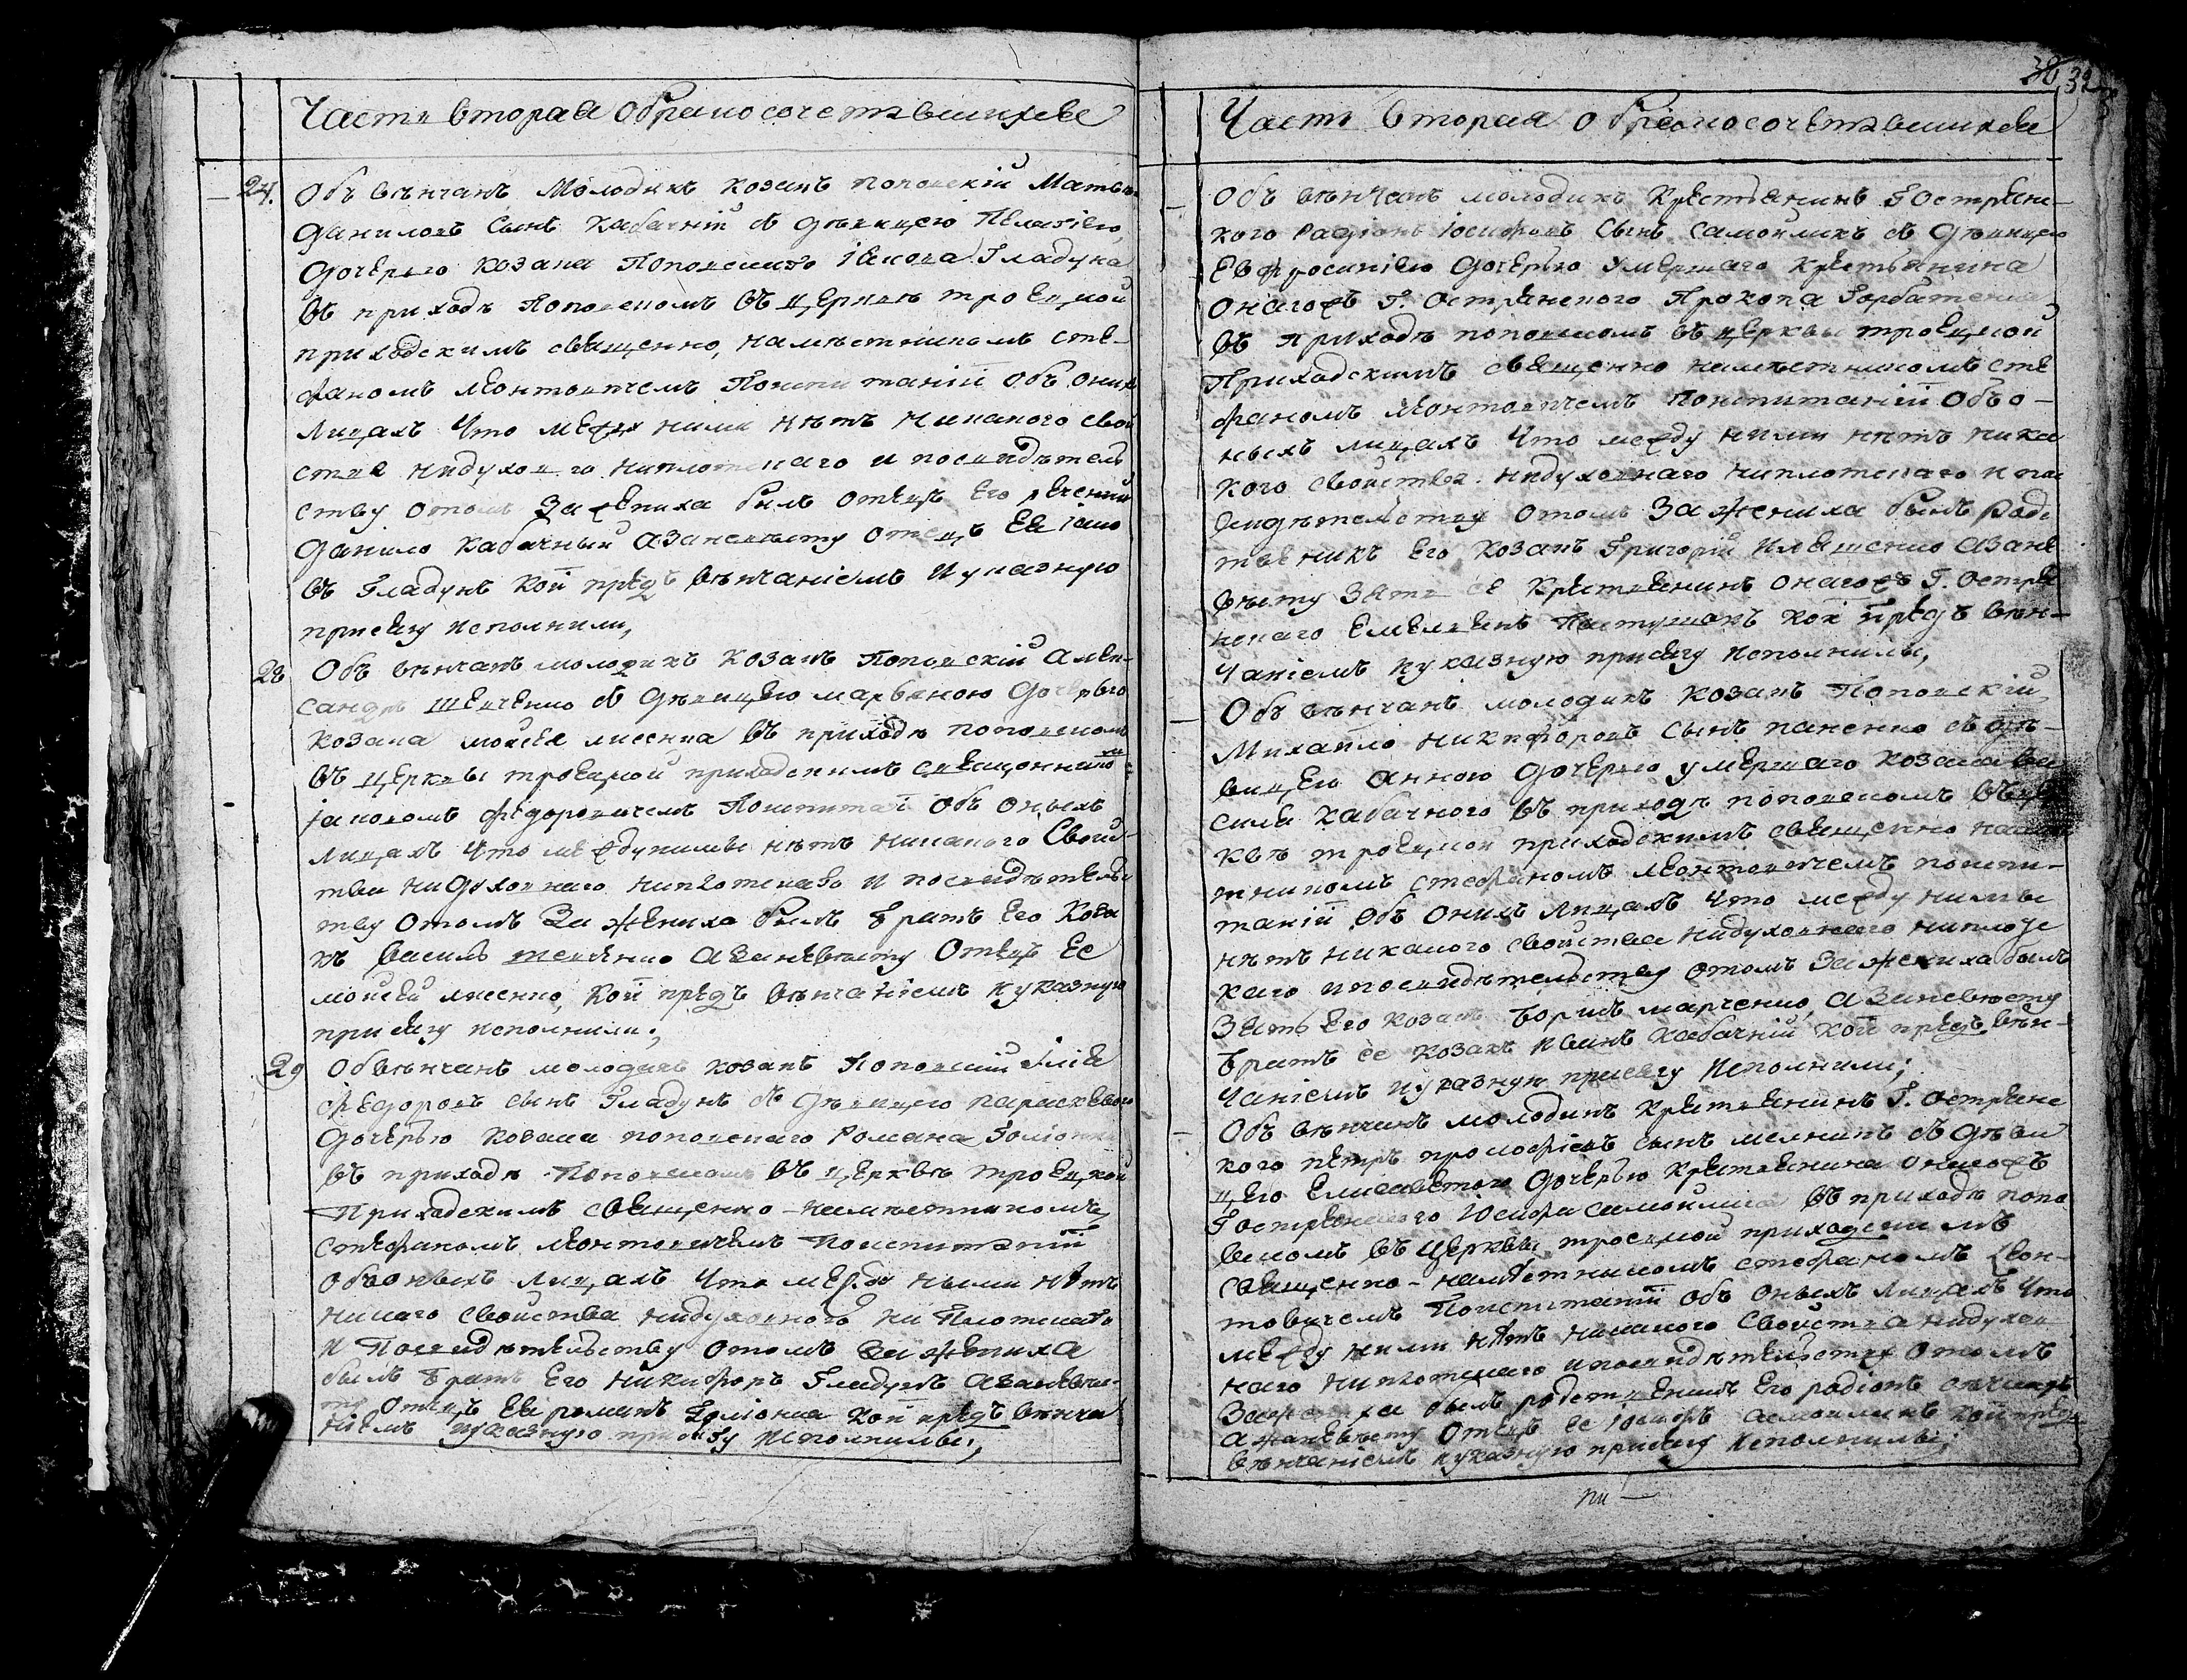 Часть вторая обракосочетавшихся
24. Объ вѣнчанъ молодикъ козакъ поповскій Матвѣй
Даниловъ сынъ Кабачній съ дѣвицею Пелагіею,
дочерью козака Поповскаго Іакова Гладуна
въ приходѣ Поповскомъ въ церквѣ троецкой
приходскимъ священно, намѣстникомъ сте-
фаномъ леонтовичемъ Поиспитаніи объ онихъ
лицахъ что между ними нѣтъ никакого свой
ства нидуховнаго ниплотскаго и посвидѣтель
ству отомъ За жениха былъ отецъ его реченній
Данило Кабачный азаневѣсту отецъ Ея Іако
въ Гладунъ кои предъ вѣнчаніемъ и указную
присягу исполнили,
28 Объ вѣнчанъ молодикъ козакъ Поповскій Алек-
сандръ Шевченко съ дѣвицею марьяною дочерью
козака мойсея лисенка въ приходѣ поповскомъ
въ церквы троецкой приходскимъ священникомъ
іаковомъ федоровичемъ Поиспитаніи объ оныхъ
лицахъ что междунимы нѣтъ никакого Свойс-
тва нидуховнаго ниплотскаго и посвидѣтельс
тву отомъ За жениха былъ братъ Его Коза
къ Василь шевченко Азаневѣсту Отецъ Ее
мойсей лисенко, кои предъ вѣнчаніемъ и указную
присягу исполнили;
29 Обвѣнчанъ молодикъ козакъ Поповскій Илія
федоровъ сынъ Гладунъ съ дѣвицею параскевіею
дочерью козака поповскаго Романа
въ приходѣ Поповскомъ въ церквѣ троецкой
Приходскимъ священно-намѣстникомъ
стефаномъ леонтовичемъ Поиспитаніи
объоныхъ лицахъ что между ными нѣтъ
никаго свойства нидуховного ни Плотскаго
и Посвидѣтельству отомъ За жениха
былъ братъ Его Никифоръ Гладунъ азаневѣс-
ту Отецъ Ея романъ кои предъ вѣнча
ніемъ указную присягу исполнилы;
Часть вторая обракосочетавшихся
38 39
Объ вѣнчанъ молодикъ крестьянинъ Г Острянс-
кого Радіонъ Іосифовъ Сынъ Самойликъ съ дѣвицею
Евфросиніею дочерью умершаго крестьянина
онагожъ Г. Острянского Прокопа Горбатенка
въ приходѣ поповскомъ въ церквы троецкой
Приходскимъ священно намѣстникомъ сте
фаномъ леонтовичемъ Поиспитаніи Объ о-
ныхъ лицахъ что между ними нѣтъ ника
кого свойства нидуховнаго ниплотскаго и пос
видѣтельству отомъ За жениха былъ родс
твеникъ его козакъ Григорій Иляшенко азане
вѣсту зять ее крестьянинъ онагожъ Г. Острян
скаго Емельянъ Пастушокъ кои предъ вѣн-
чаніемъ и указную присягу исполнили,
Объ вѣнчанъ молодикъ козакъ Поповскій
Михайло никифоровъ сынъ паненко съ дѣ-
вицею Анною дочерью умершаго козака Ва
силя кабачного въ приходѣ поповскомъ въ цер
квѣ троецкой приходскимъ священно намѣс
тникомъ стефаномъ леонтовичемъ поиспи-
таніи объ онихъ лицахъ что между нимы
нѣтъ никакого свойства нидуховнаго ниплотс
каго и посвидѣтельству отомъ За жениха былъ
Зять его козакъ борисъ марченко, азаневѣсту
братъ ее козакъ иванъ кабачній кои предъ вѣн-
чаніемъ и указную присягу исполнили;
Объ вѣнчанъ молодикъ крестьянинъ Г. Острянс
кого петръ прокофіевъ сынъ мелникъ съ дѣви
цею Елисаветою дочерью крестьянина онагожъ
Гострянского Іосифа самойлика въ приходѣ попо
вскомъ въ церквы троецкой приходскимъ
священно-намѣстникомъ стефаномъ леон-
товичемъ Поиспитаніи объ оныхъ лицахъ что
между ними нѣтъ никакого свойства нидухов
наго ниплотскаго и посвидѣтельству отомъ
Зажениха былъ родственикъ Его радіонъ
а жаневѣсту Отецъ ее Іосифъ самойликъ кои предъ
вѣнчаніемъ и указную присягу исполнилы;